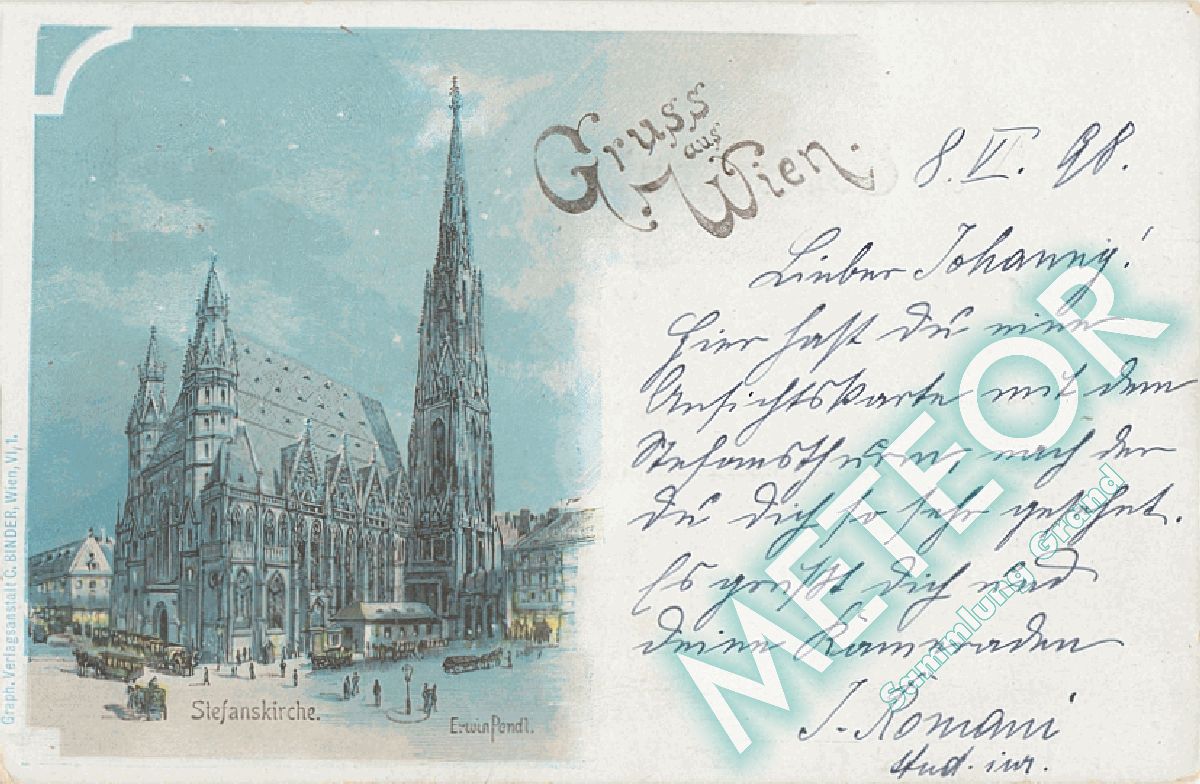 Gruss
aus
Wien.
8. VI. 98.
Lieber Johanny!
Hier hast du eine
Ansichtskarte mit dem
Stefansthurm, nach der
du dich so sehr gesehnt.
Es grüßt dich und
deine Kameraden
J. Romani
stud. iur.
Stefanskirche.
Erwin Pendl.
Graph. Verlagsanstalt C. BINDER, Wien, VI/1.
METEOR
Sammlung Grand